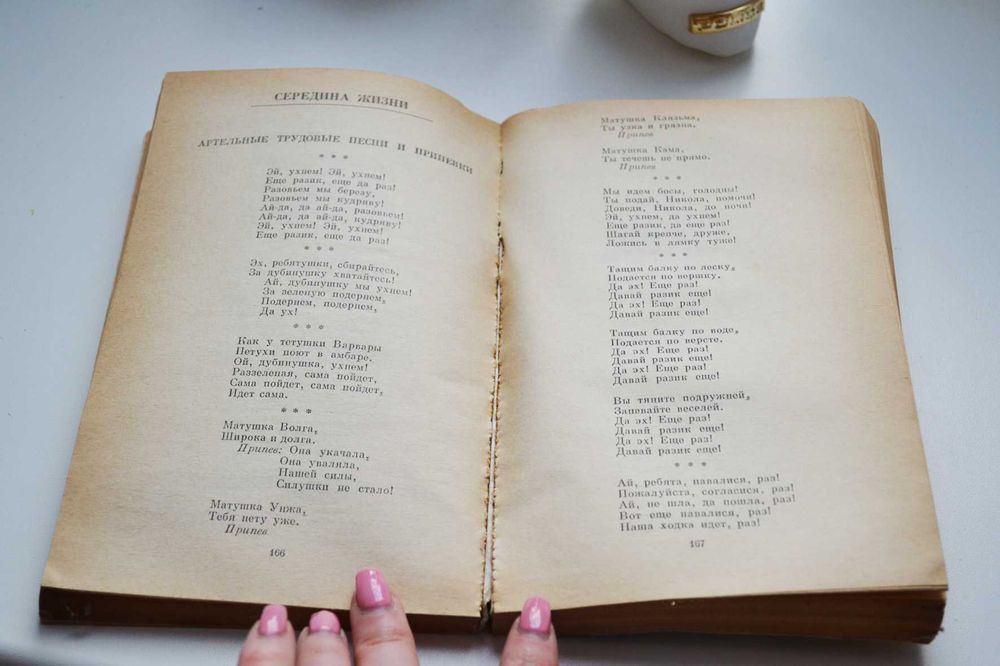 СЕРЕДИНА ЖИЗНИ
АРТЕЛЬНЫЕ ТРУДОВЫЕ ПЕСНИ И ПРИПЕВКИ
* * *
Эй, ухнем! Эй, ухнем!
Еще разик, еще да раз!
Разовьем мы березу,
Разовьем мы кудряву!
Ай-да, да ай-да, разовьем!
Ай-да, да ай-да, кудряву!
Эй, ухнем! Эй, ухнем!
Еще разик, еще да раз!
* * *
Эх, ребятушки, сбирайтесь,
За дубинушку хватайтесь!
Ай, дубинушку мы ухнем!
За зеленую подернем,
Подернем, подернем,
Да ух!
* * *
Как у тетушки Варвары
Петухи поют в амбаре.
Ой, дубинушка, ухнем!
Раззеленая, сама пойдет,
Сама пойдет, сама пойдет,
Идет сама.
* * *
Матушка Волга,
Широка и долга.
Припев: Она укачала,
Она уваляла,
Нашей силы,
Силушки не стало!
Матушка Унжа,
Тебя нету уже.
Припев
166
Матушка Клязьма,
Ты узка и грязна.
Припев
Матушка Кама,
Ты течешь не прямо.
Припев
* * *
Мы идем босы, голодны!
Ты подай, Никола, помочи!
Доведи, Никола, до ночи!
Эй, ухнем, да ухнем!
Еще разик, да еще раз!
Шагай крепче, друже,
Ложись в лямку туже!
* * *
Тащим балку по леску,
Подается по вершку.
Да эх! Еще раз!
Давай разик еще!
Да эх! Еще раз!
Давай разик еще!
Тащим балку по воде,
Подается по версте.
Да эх! Еще раз!
Давай разик еще!
Да эх! Еще раз!
Давай разик еще!
Вы тяните подружней,
Запевайте веселей.
Да эх! Еще раз!
Давай разик еще!
Да эх! Еще раз!
Давай разик еще!
* * *
Ай, ребята, навалися, раз!
Пожалуйста, согласися, раз!
Ай, не шла, да пошла, раз!
Вот еще навалися, раз!
Наша ходка идет, раз!
167